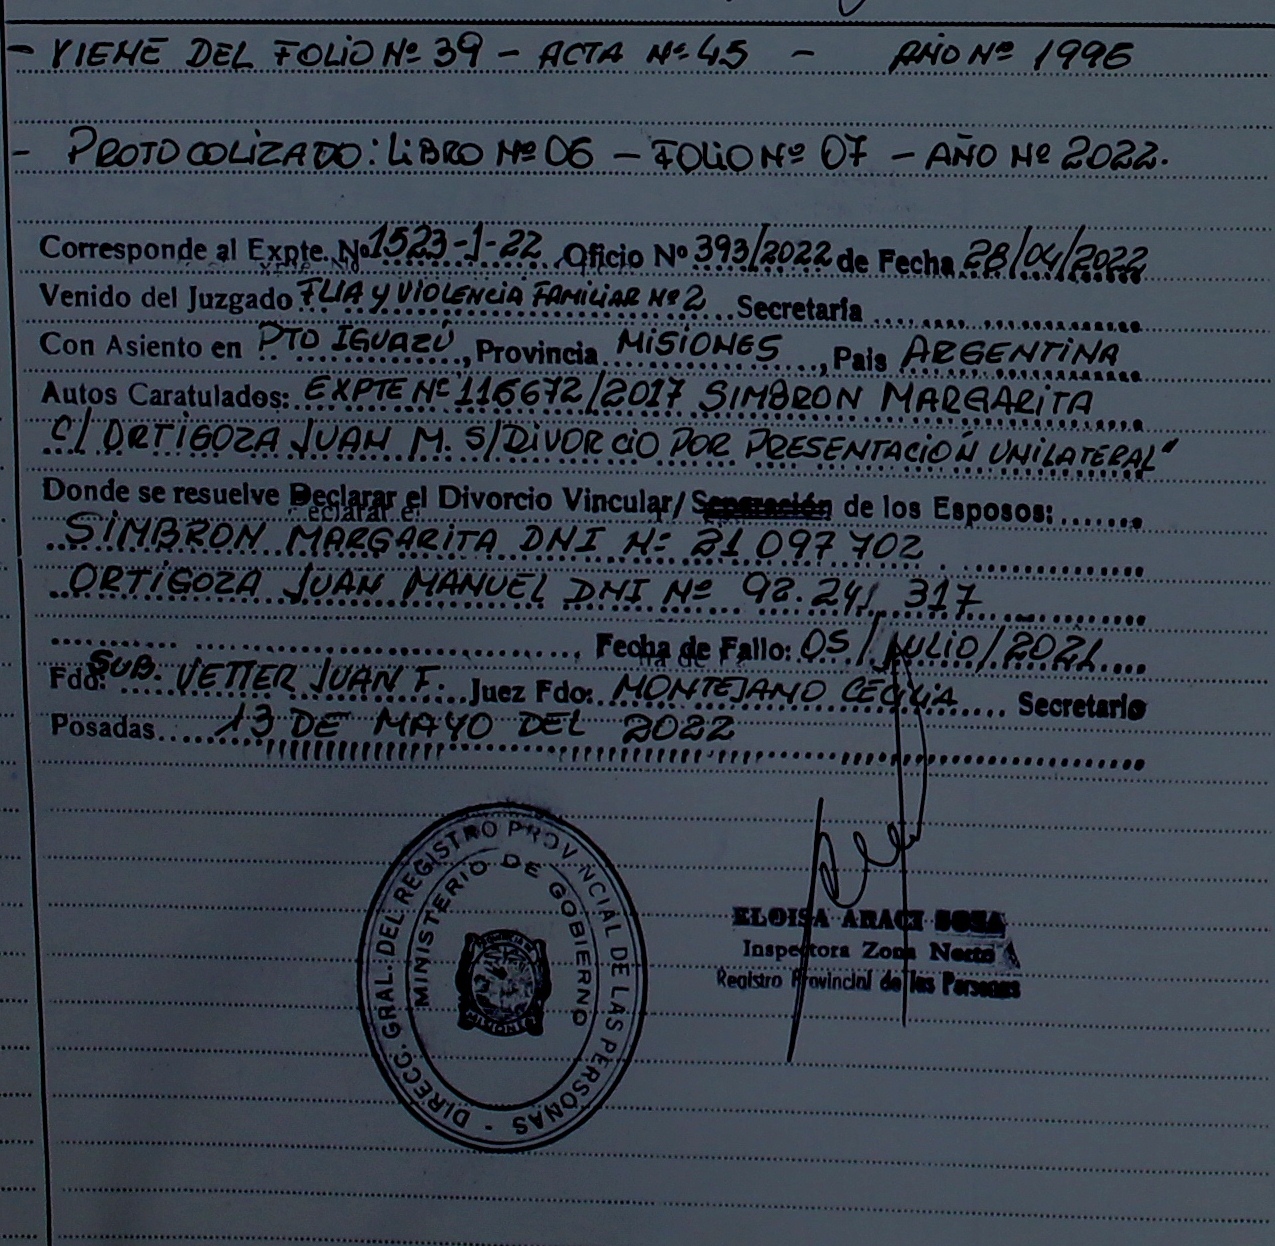 - VIENE DEL FOLIO Nº 39 - ACTA Nº 45 - AÑO Nº 1996
- PROTOCOLIZADO: LIBRO Nº 06 - FOLIO Nº 07 - AÑO Nº 2022.
Corresponde al Expte. Nº 1523-1-22 Oficio Nº 393/2022 de Fecha 28/04/2022
Venido del Juzgado FLIA y VIOLENCIA FAMILIAR Nº 2 Secretaría
Con Asiento en PTO IGUAZÚ, Provincia MISIONES, Pais ARGENTINA
Autos Caratulados: EXPTE Nº 116672/2017 SIMBRON MARGARITA
C/ ORTIGOZA JUAN M. S/DIVORCIO POR PRESENTACIÓN UNILATERAL"
Donde se resuelve Declarar el Divorcio Vincular/ Separación de los Esposos:
SIMBRON MARGARITA DNI Nº 21 097 702
ORTIGOZA JUAN MANUEL DNI Nº 317
Fecha de Fallo: 05/JULIO/2021
Fdo: SUB. VETTER JUAN F. Juez Fdo: MONTEJANO CECILIA Secretario
Posadas 13 DE MAYO DEL 2022
DIRECC. GRAL. DEL REGISTRO PROVINCIAL DE LAS PERSONAS -
MINISTERIO DE GOBIERNO
MISIONES
ELOISA ARACI SOSA
Inspectora Zona Norte
Registro Provincial de las Personas